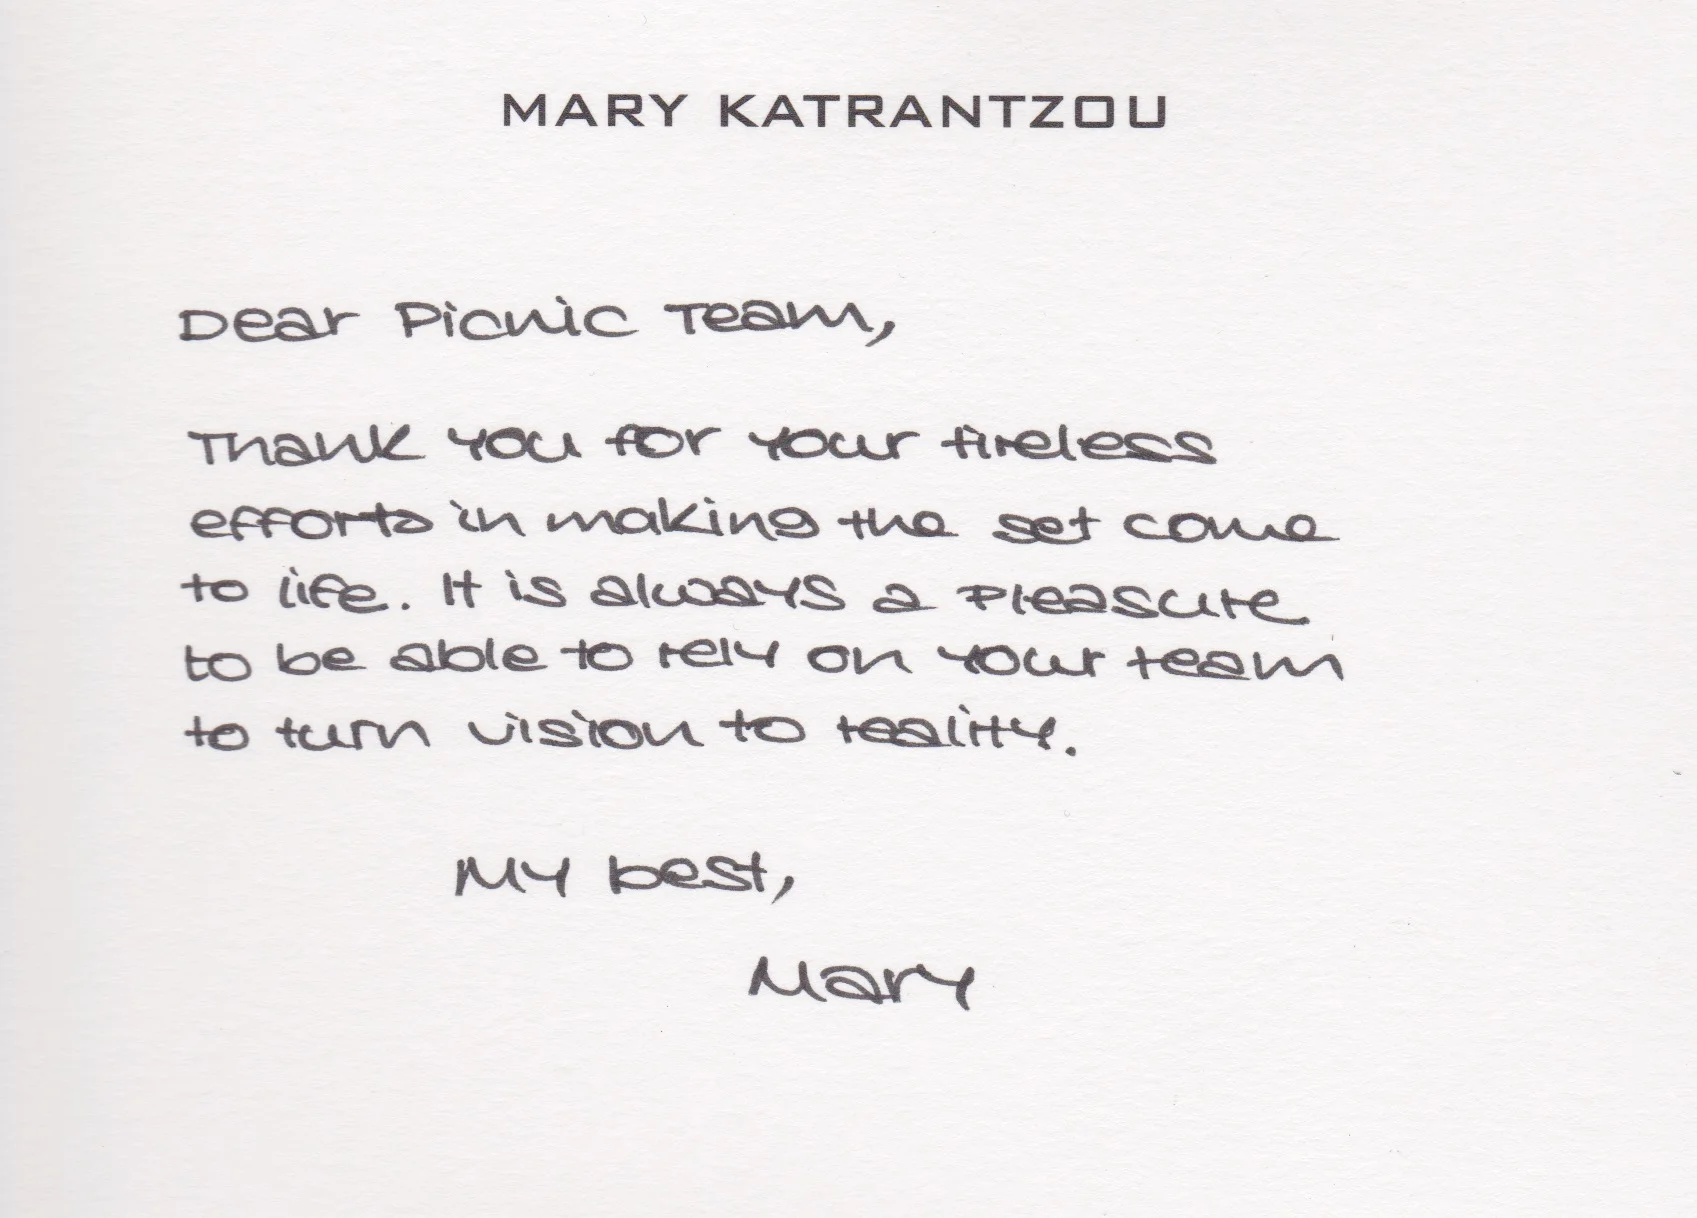 MARY KATRANTZOU
Dear Picnic Team,
Thank you for your tireless
efforts in making the set come
to life. It is always a pleasure
to be able to rely on your team
to turn vision to reality.
My best,
Mary